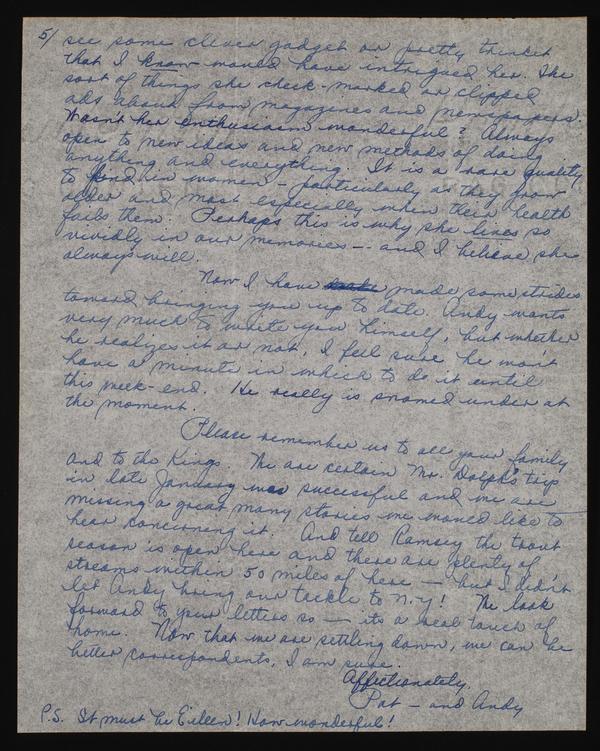 5/ see some clever gadget or pretty trinket
that I know would have intrigued her. The
sort of things she check-marked or clipped
ads about from magazines and newspapers.
Wasn't her enthusiasm wonderful? Always
open to new ideas and new methods of doing
anything and everything. It is a rare quality
to find in women - particularly as they grow
older and most especially when their health
fails them. Perhaps this is why she lives so
vividly in our memories -- and I believe she
always will.
Now I have made some strides
toward bringing you up to date. Andy wants
very much to write you himself, but whether
he realizes it or not, I feel sure he won't
have a minute in which to do it until
this week-end. He really is snowed under at
the moment.
Please remember us to all your family
and to the Kings. We are certain Mr. Dolph's trip
in late January was successful and we are
missing a great many stories we would like to
hear concerning it. And tell Ramsey the trout
season is open here and there are plenty of
streams within 50 miles of here - but I didn't
let Andy bring our tackle to N.Y! We look
forward to your letters so - its a real touch of
home. Now that we are settling down, we can be
better correspondents, I am sure.
Affectionately,
Pat - and Andy
P.S. It must be Eileen! How wonderful!